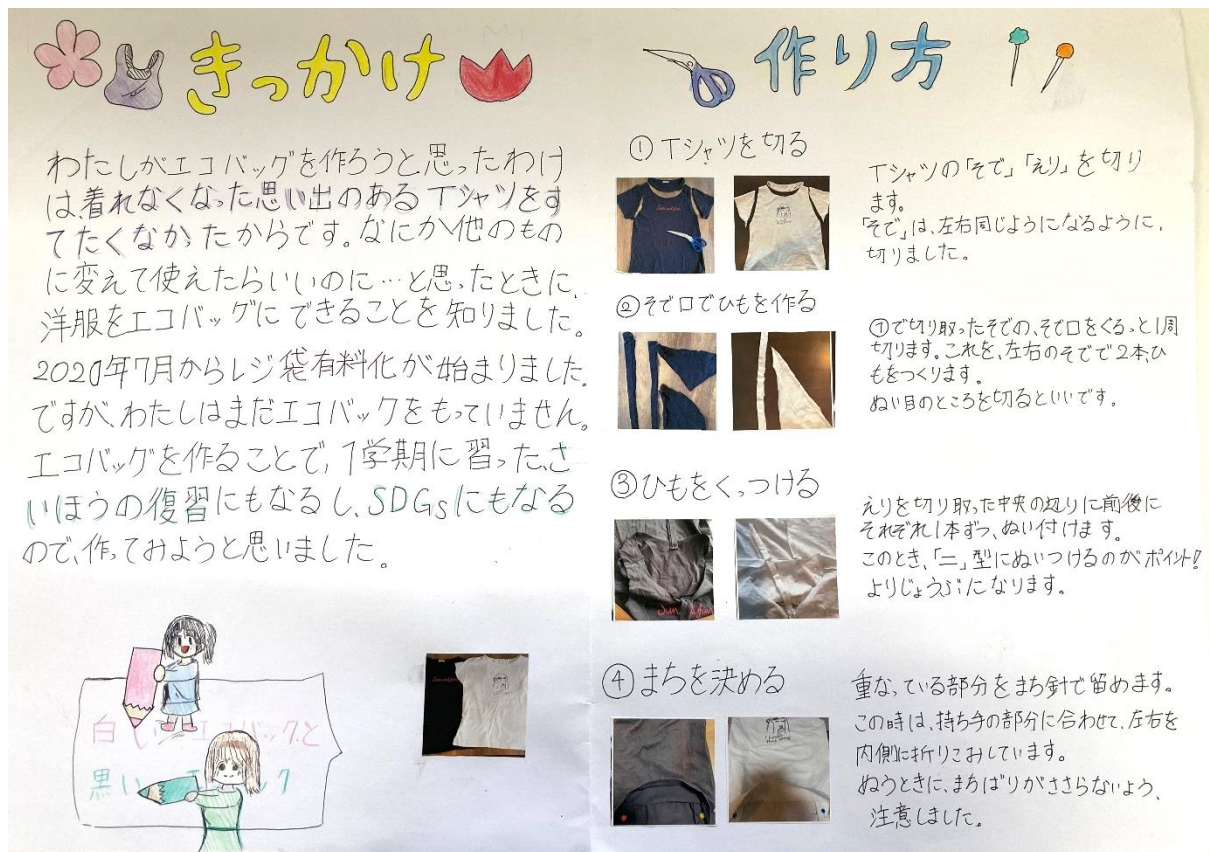 きっかけ
わたしがエコバッグを作ろうと思ったわけ
は、着れなくなった思い出のあるTシャツをす
てたくなかったからです。なにか他のもの
に変えて使えたらいいのに…と思ったときに、
洋服をエコバッグにできることを知りました。
2020年7月からレジ袋有料化が始まりました。
ですが、わたしはまだエコバックをもっていません。
エコバッグを作ることで、1学期に習った、さ
いほうの復習にもなるし、SDGsにもなる
ので、作ってみようと思いました。
白い エコバックと
黒い ック
作り方
①Tシャツを切る
Tシャツの「そで」「えり」を切り
ます。
「そで」は、左右同じようになるように、
切りました。
②そで口でひもを作る
①で切り取ったそでの、そで口をぐるっと1周
切ります。これを、左右のそでで2本、ひ
もをつくります。
ぬい目のところを切るといいです。
③ひもをくっつける
えりを切り取った中央の辺りに前後に
それぞれ1本ずつ、ぬい付けます。
このとき、「二」型にぬいつけるのがポイント!
よりじょうぶになります。
Sun
④まちを決める
重なっている部分をまち針で留めます。
この時は、持ち手の部分に合わせて、左右を
内側に折りこおしています。
ぬうときに、まちばりがささらないよう、
注意しました。